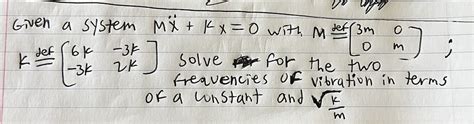 Given a system Mẍ + Kx = 0 with M ≝ [3m 0; 0 m] ;
K ≝ [6k -3k; -3k 2k] solve for the two
frequencies of vibration in terms
of a constant and √(k/m)